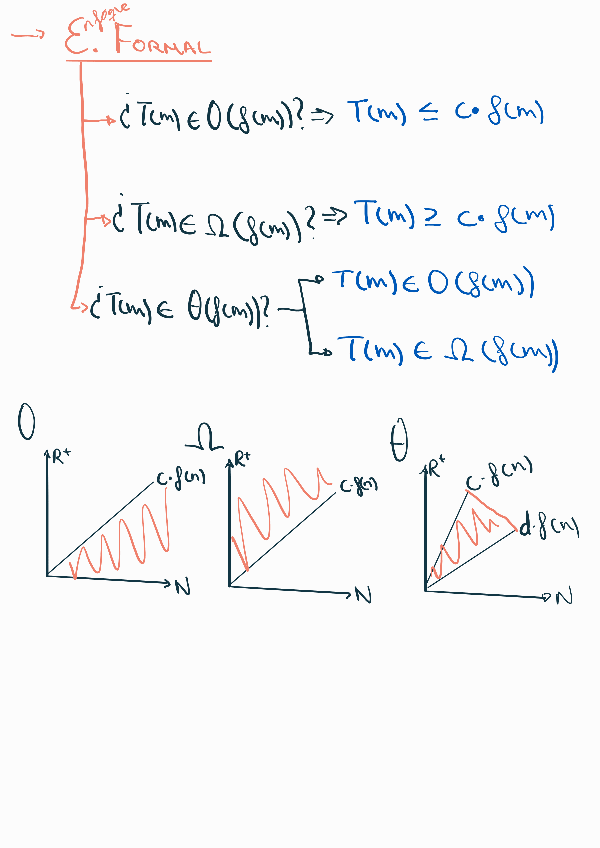 → Enfoque E. FORMAL
¿T(m) ∈ O(f(m))? ⇒ T(m) ≤ c·f(m)
¿T(m) ∈ Ω(f(m))? ⇒ T(m) ≥ c·f(m)
¿T(m) ∈ θ(f(m))?
T(m) ∈ O(f(m))
T(m) ∈ Ω(f(m))
O
R+
c·f(n)
N
Ω
R+
c·f(n)
N
θ
R+
c·f(n)
d·f(n)
N